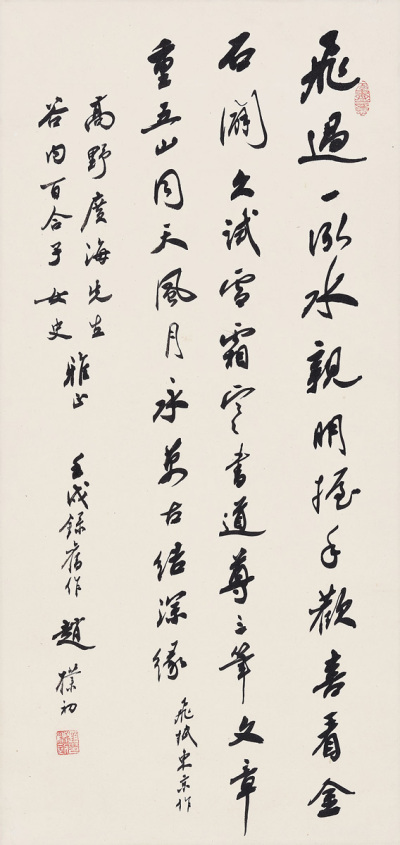 飛過一泓水親朋握手歡喜看金
石久試雪霜寒書道尊三筆文章
重五山同天風月永萬古結深緣
飛抵東京作
高野廣海先生
谷内百合子女史
雅正
壬戌錄舊作
趙樸初